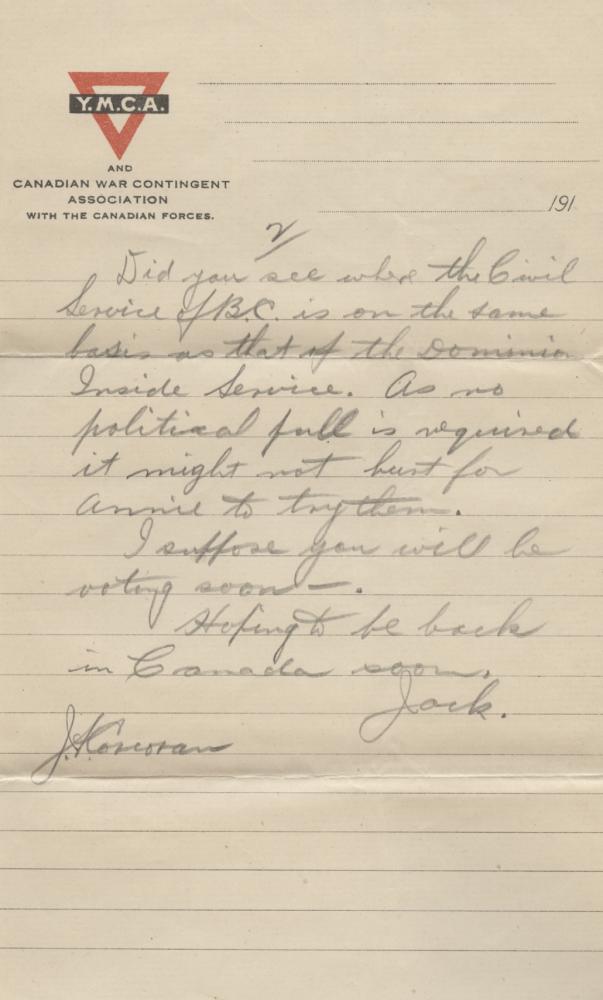 Y.M.C.A.
AND
CANADIAN WAR CONTINGENT
ASSOCIATION
WITH THE CANADIAN FORCES.
191
2/
Did you see where the Civil
Service of B.C. is on the same
basis as that of the Dominion
Inside Service. As no
political pull is required
it might not hurt for
Annie to try them.
I suppose you will be
voting soon —.
Hoping to be back
in Canada soon,
Jack.
J. Corcoran